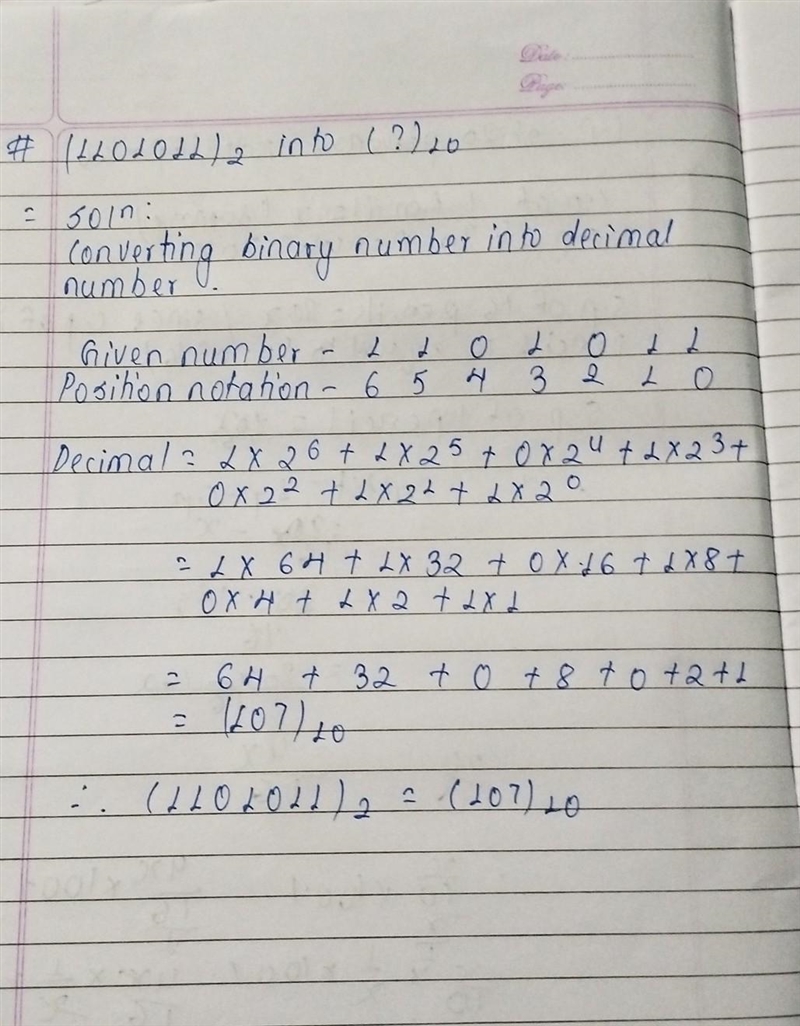 Date:
Page:
# (1101011)₂ into (?)₁₀
= Soln:
Converting binary number into decimal
number.
Given number - 1 1 0 1 0 1 1
Position notation - 6 5 4 3 2 1 0
Decimal = 1×2⁶ + 1×2⁵ + 0×2⁴ + 1×2³ +
0×2² + 1×2¹ + 1×2⁰
= 1×64 + 1×32 + 0×16 + 1×8 +
0×4 + 1×2 + 1×1
= 64 + 32 + 0 + 8 + 0 + 2 + 1
= (107)₁₀
∴ (1101011)₂ = (107)₁₀